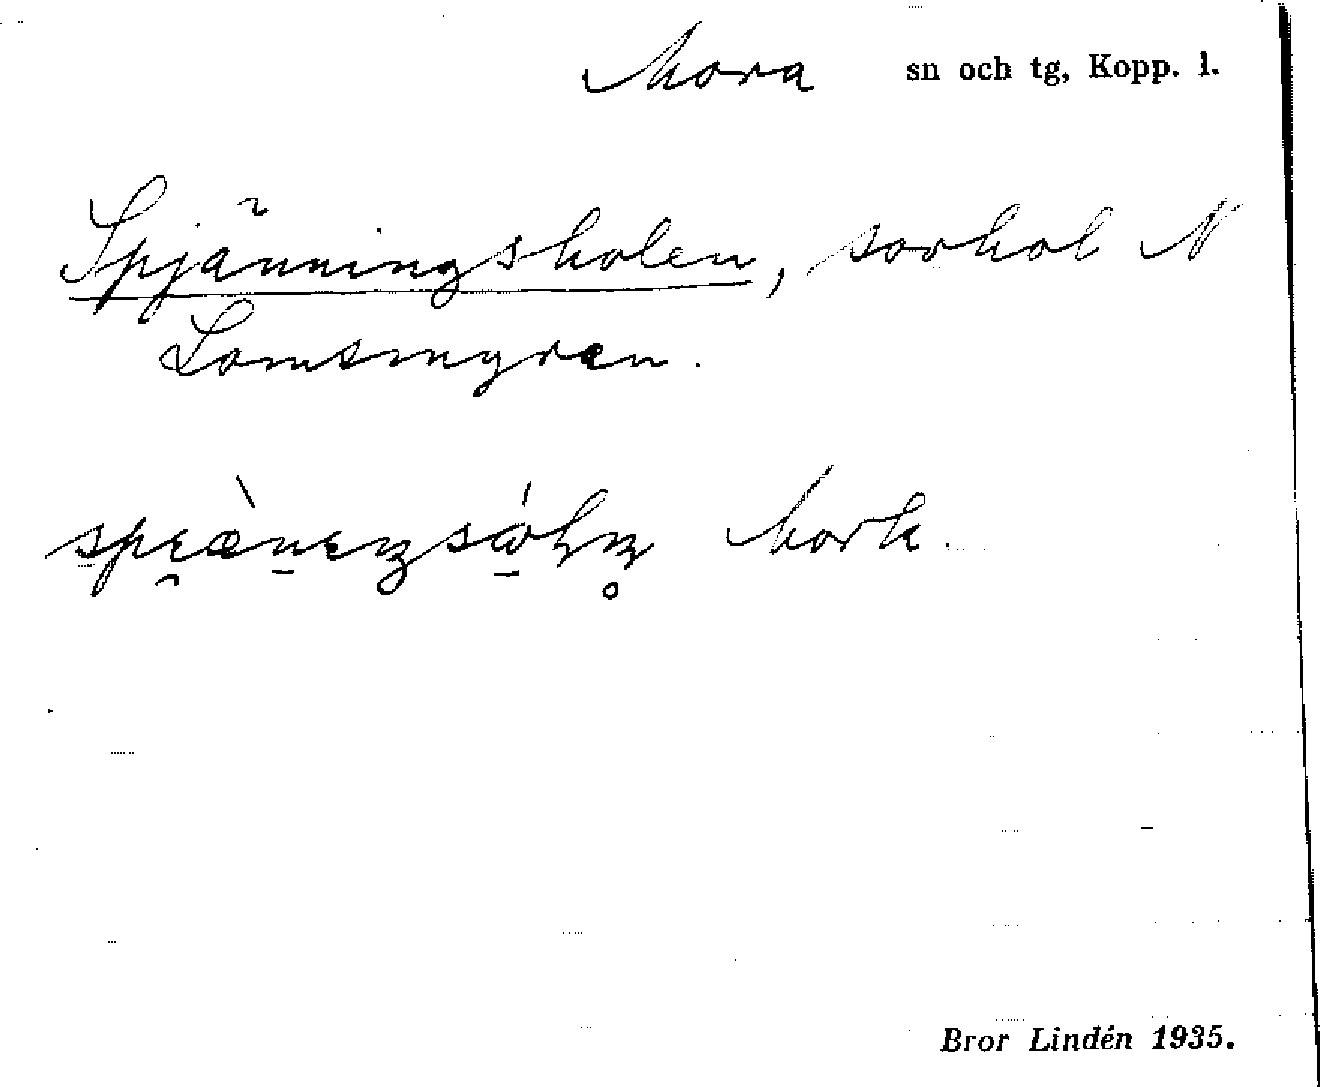 Mora sn och tg, Kopp. l.
Spjänningsholen, sovhol N
Lomsmyren.
Mork.
Bror Lindén 1935.